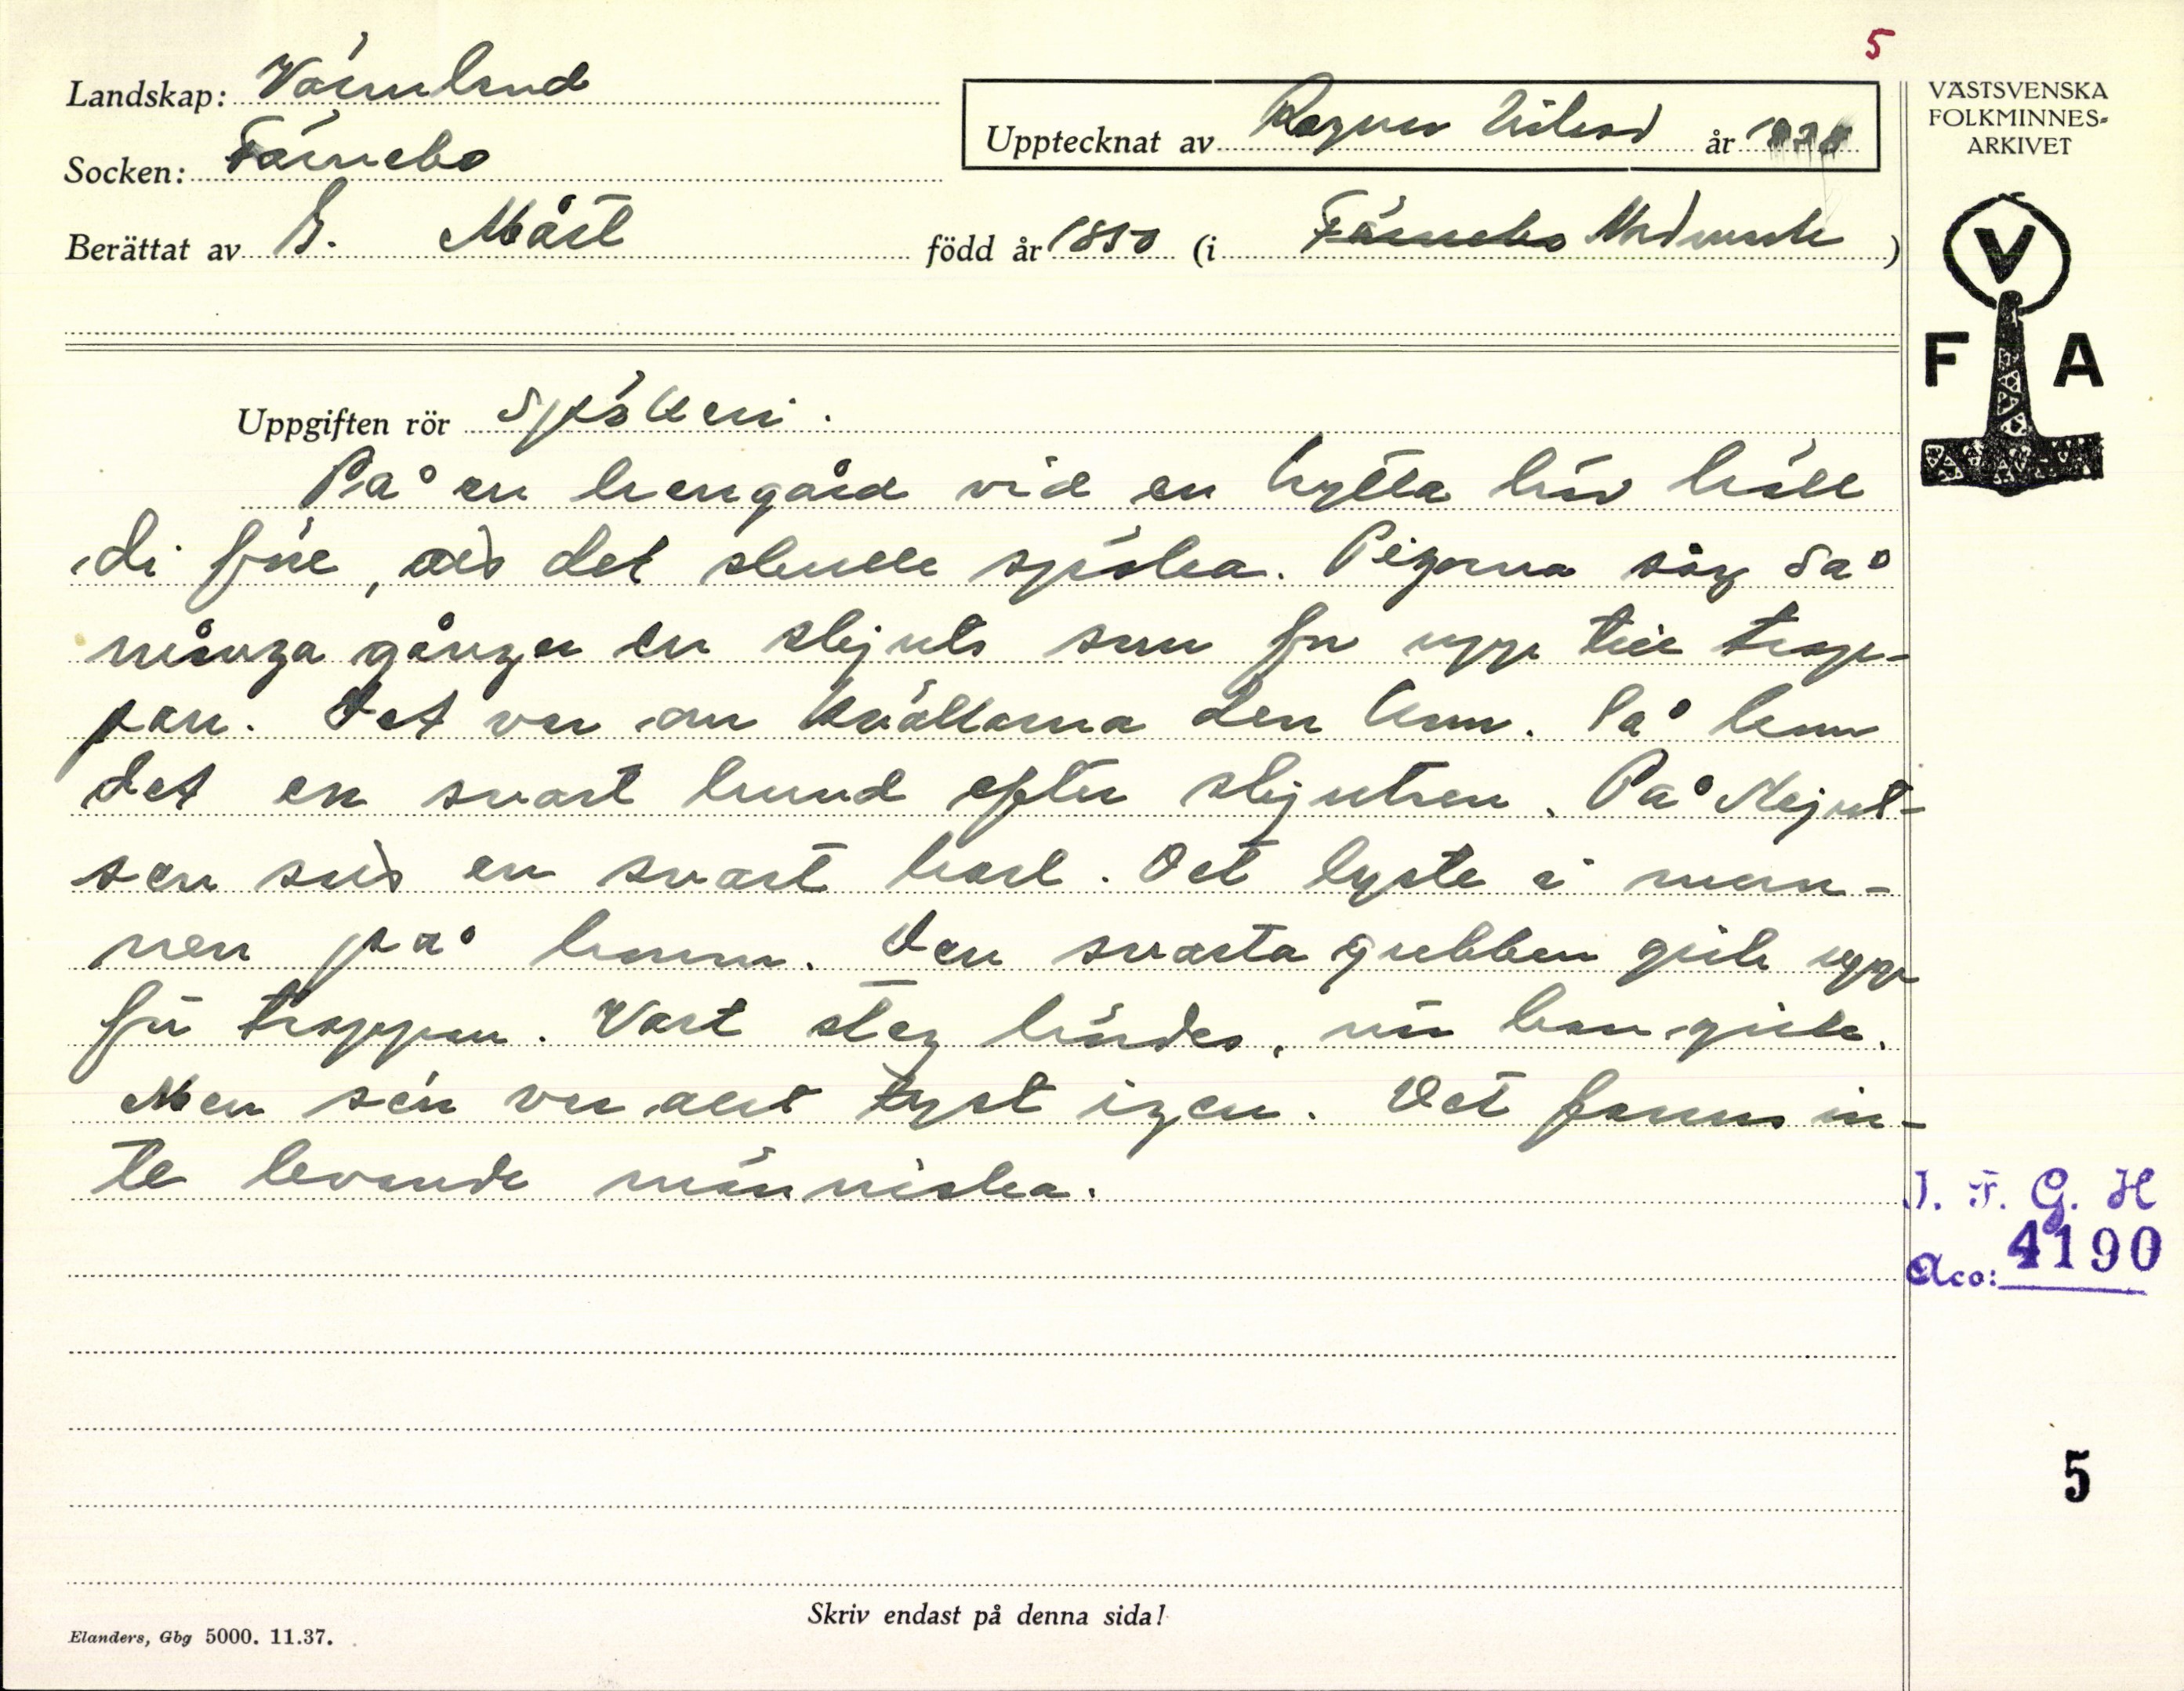 5
Landskap: Värmland
Socken: Färnebo
Upptecknat av Ragnar Nilsson år
Berättat av E. Måst född år 1850 (i Färnebo Nordmark)
VÄSTSVENSKA
FOLKMINNES-
ARKIVET
V
F A
Uppgiften rör Spökeri.
På en herrgård vid en hytta här höll
di före, att det skulle spöka. Pigorna såg så
många gånger en skjuts som for upp till trap-
pan. Det var om kvällarna den kom. Så kom
det en svart hund efter skjutsen. På skjut-
sen satt en svart karl. Det lyste i mun-
nen på honom. Den svarta gubben gick upp
för trappan. Vart steg hördes, när han gick.
Men sén var allt tyst igen. Det fanns in-
te levande människa.
I. F. G. H
Acc: 4190
5
Skriv endast på denna sida!
Elanders, Gbg 5000. 11.37.